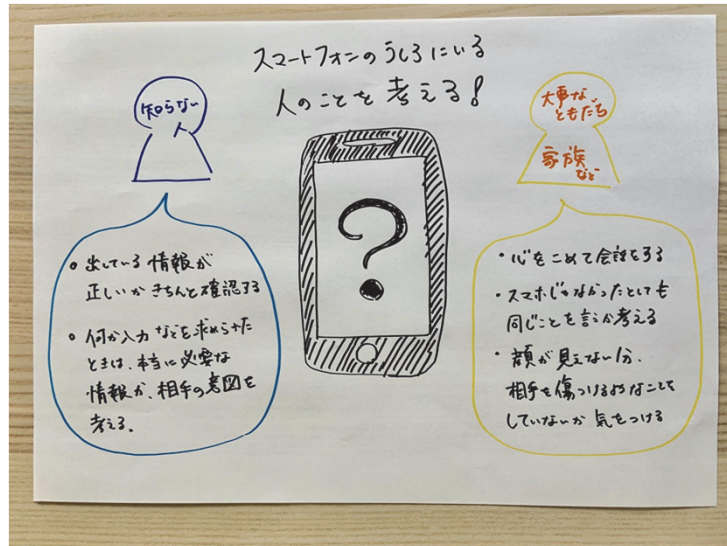 スマートフォンのうしろにいる
人のことを考える!
知らない
人
?
大事な
ともだち
家族
など
• 出している情報が
正しいかきちんと確認する
• 何か入力などを求められた
ときは、本当に必要な
情報か、相手の意図を
考える。
・心をこめて会話をする
・スマホじゃなかったとしても
同じことを言うか考える
・顔が見えない分、
相手を傷つけるようなことを
していないか気をつける